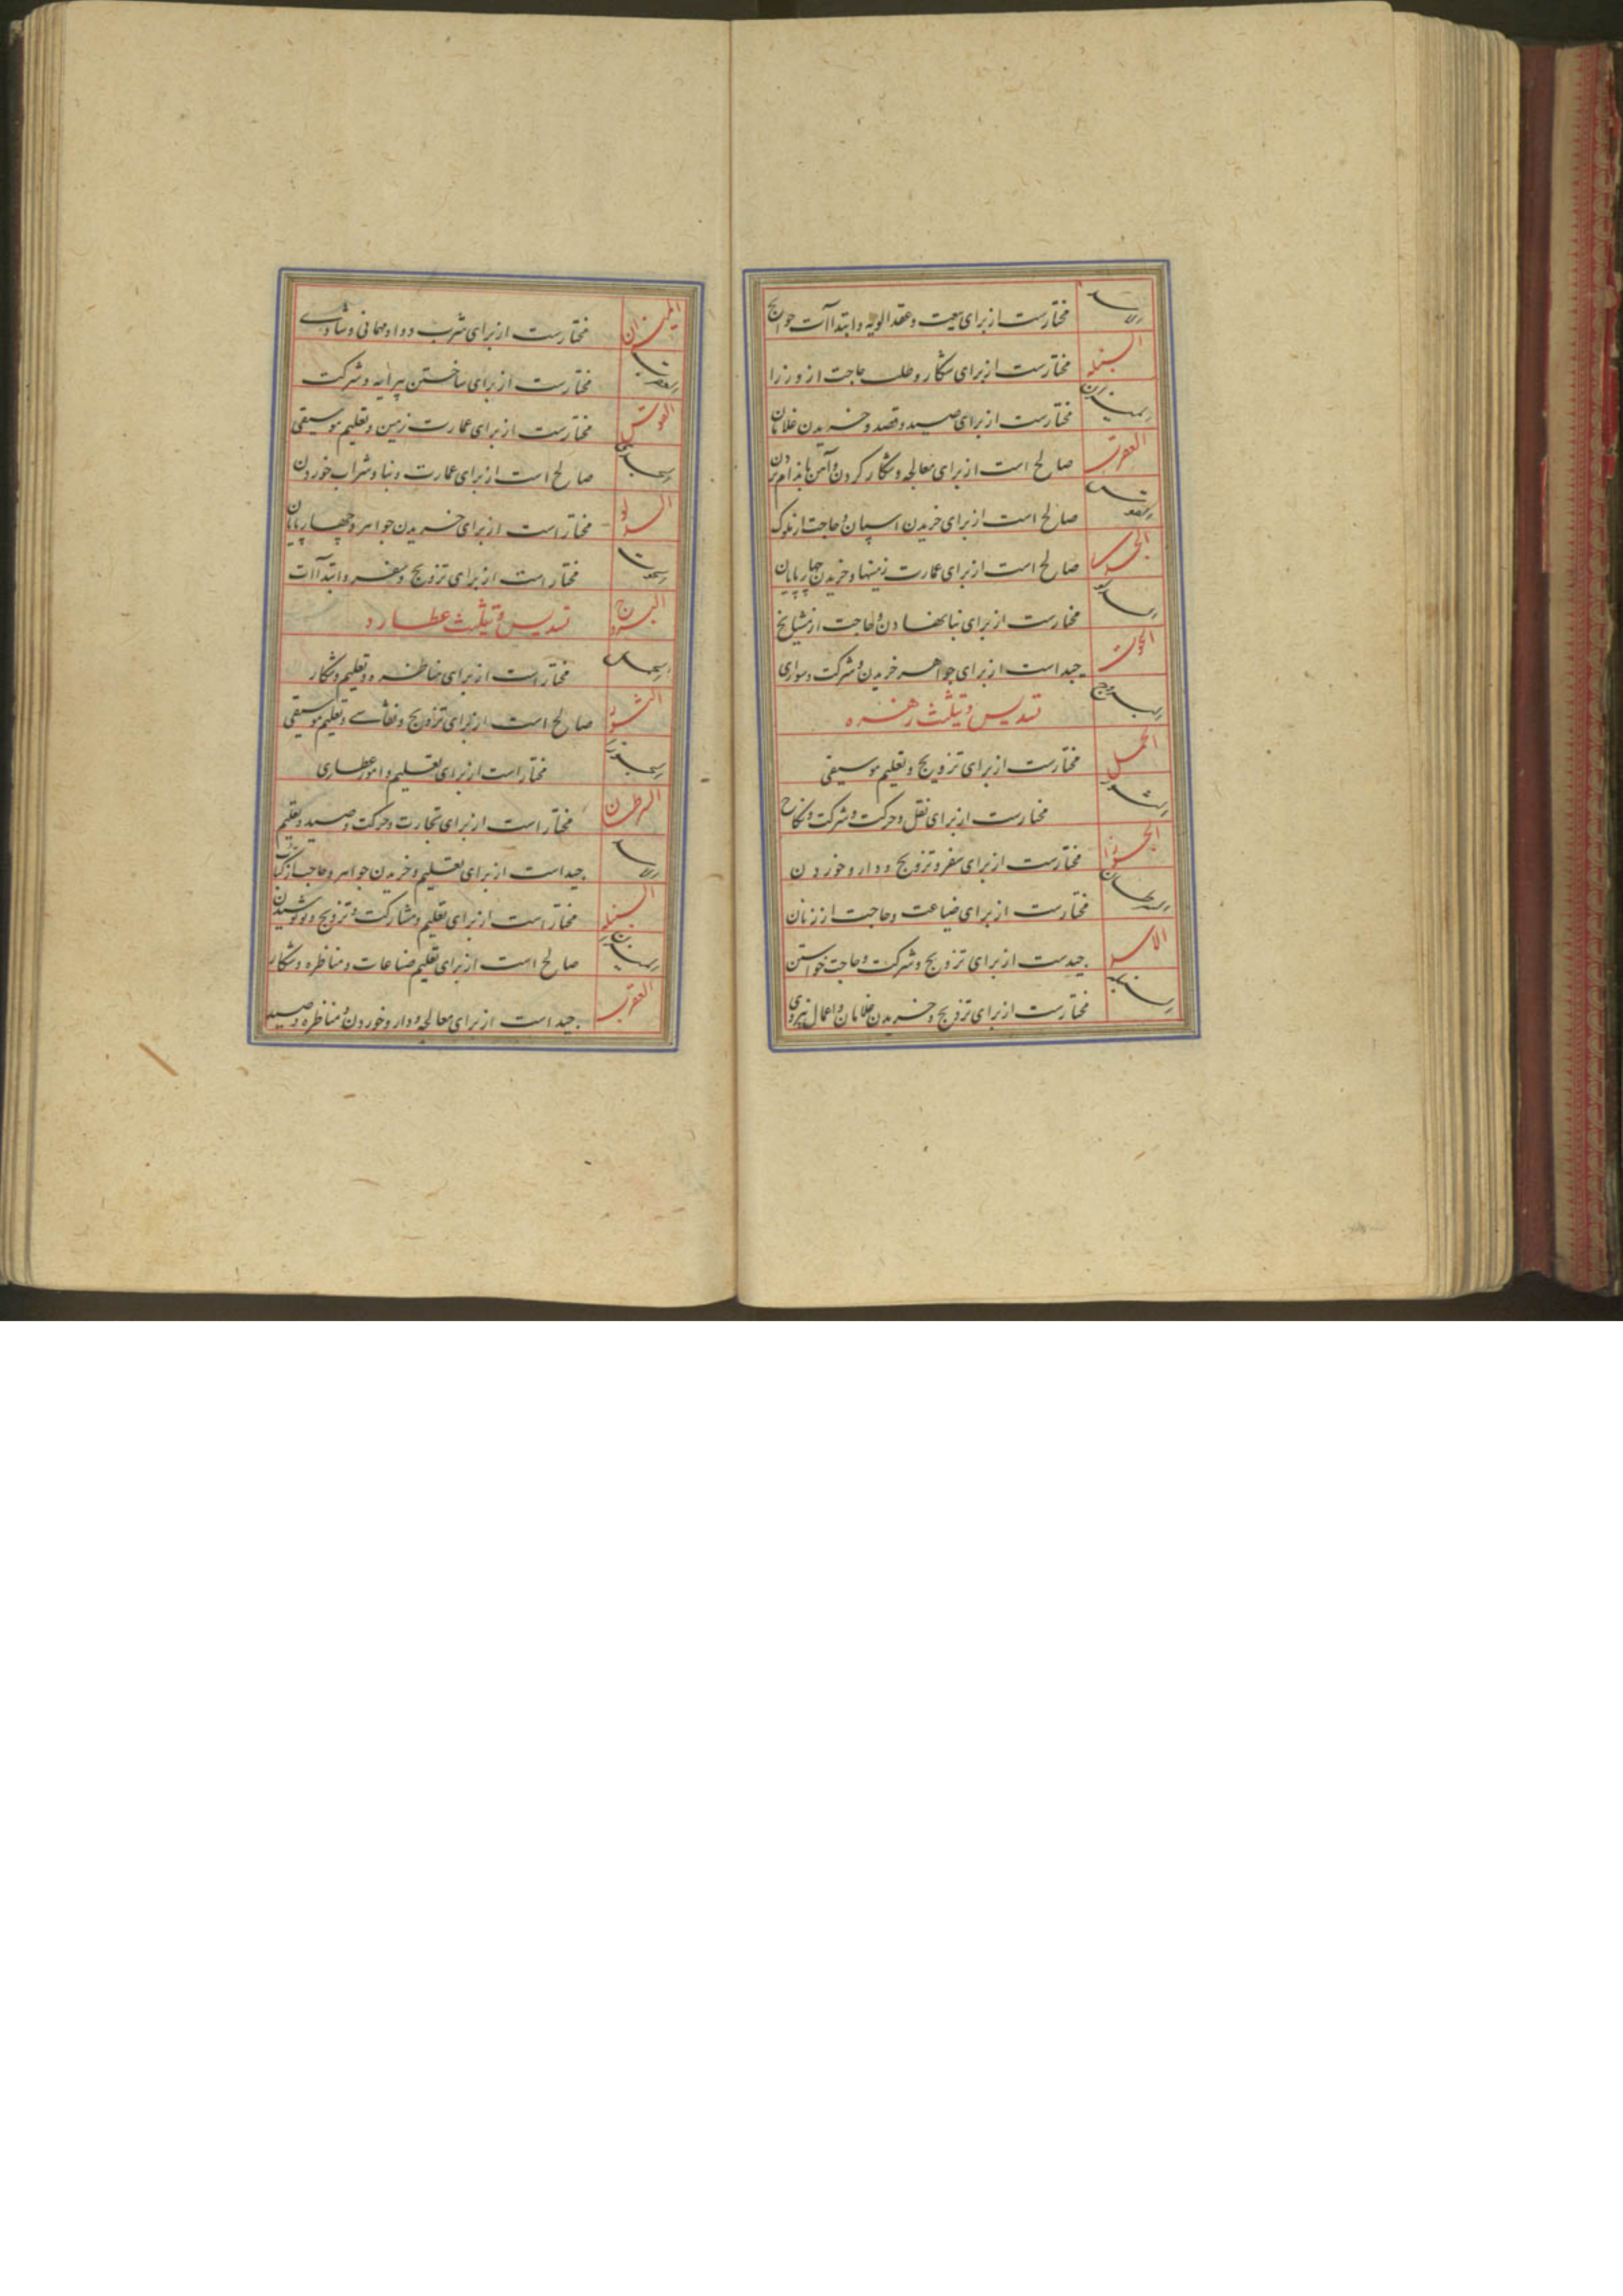 الاسد مختارست از برای بیعت و عقد الویه و ابتداآت حوایج
السنبله مختارست از برای شکار و طلب حاجت از وزرا
المیزان مختارست از برای صید و قصد و خریدن غلامان
العقرب صالح است از برای معالجه و شکار کردن و آهن
القوس صالح است از برای خریدن اسپان و حاجت از ملوک
الجدی صالح است از برای عمارت زمینها و خریدن چهارپایان
الدلو مختارست از برای بنا نهادن و حاجت از مشایخ
الحوت جید است از برای جواهر خریدن و شرکت و سواری
البروج تسدیس و تثلیث زهره
الحمل مختارست از برای تزویج و تعلیم موسیقی
الثور مختارست از برای نقل و حرکت و شرکت و نکاح
الجوزا مختارست از برای سفر و تزویج و دارو خوردن
السرطان مختارست از برای ضیاعت و حاجت از زنان
الاسد جیدست از برای تزویج و شرکت و حاجت خواستن
السنبله مختارست از برای تزویج و خریدن غلامان و اعمال
المیزان مختارست از برای شرب دوا و مهمانی و شادی
العقرب مختارست از برای ساختن پیرایه و شرکت
القوس مختارست از برای عمارت زمین و تعلیم موسیقی
الجدی صالح است از برای عمارت و بنا و شراب خوردن
الدلو مختار است از برای خریدن جواهر و چهارپایان
الحوت مختار است از برای تزویج و سفر و ابتداآت
البروج تسدیس و تثلیث عطارد
الحمل مختار است از برای مناظره و تعلیم و شکار
الثور صالح است از برای تزویج و نقاشی و تعلیم موسیقی
الجوزا مختار است از برای تعلیم و امور عطاری
السرطان مختار است از برای تجارت و حرکت و صید و تعلیم
الاسد جید است از برای تعلیم و خریدن جواهر و حاجت از
السنبله مختار است از برای تعلیم و مشارکت و تزویج و نو پوشیدن
المیزان صالح است از برای تعلیم صناعات و مناظره و شکار
العقرب جید است از برای معالجه و دارو خوردن و مناظره و صید